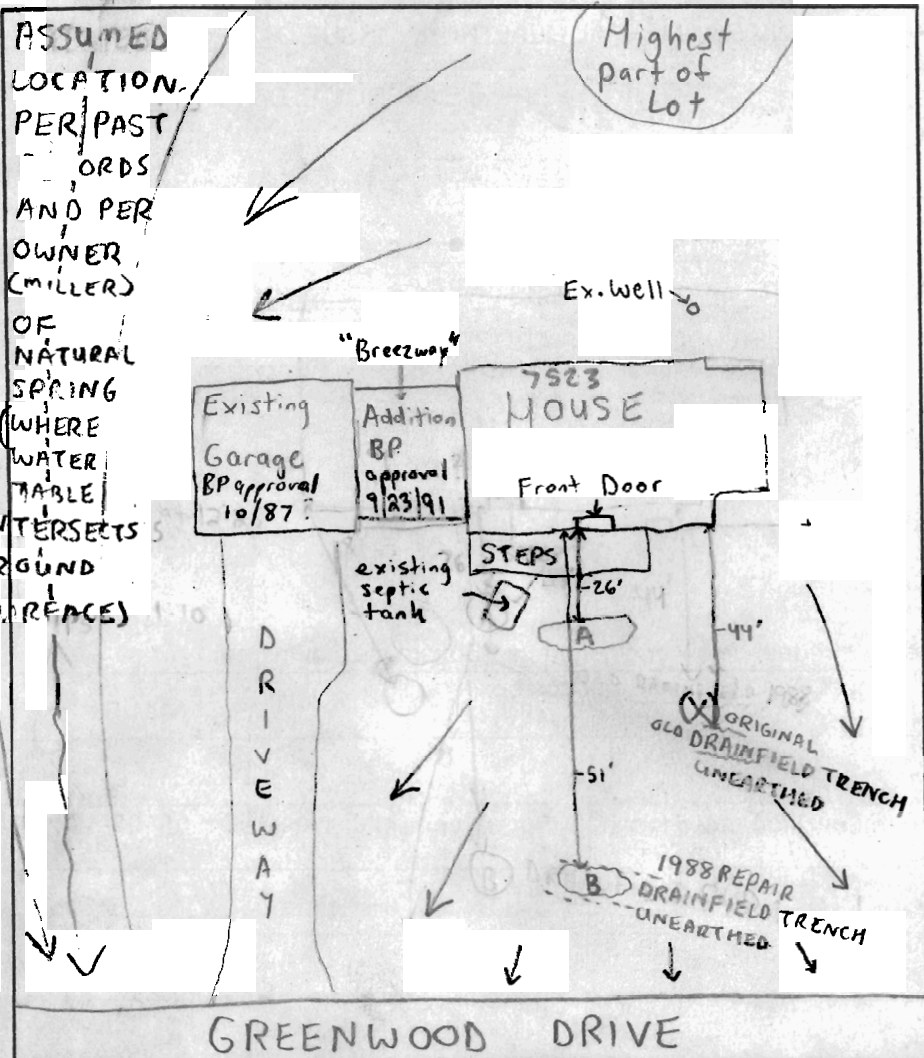 ASSUMED
LOCATION.
PER PAST
ORDS
AND PER
OWNER
(MILLER)
OF
NATURAL
SPRING
(WHERE
WATER
TABLE
TERSECTS
OUND
Highest
part of
Lot
Ex. Well
"Breezway"
7523
HOUSE
Existing
Garage
BP approval
10/87
Addition
BP
approval
9/23/91
Front Door
STEPS
existing
septic
tank
26'
A
44'
ORIGINAL
OLD DRAINFIELD TRENCH
UNEARTHED
51'
B
1988 REPAIR
DRAINFIELD TRENCH
UNEARTHED
DRIVEWAY
GREENWOOD DRIVE